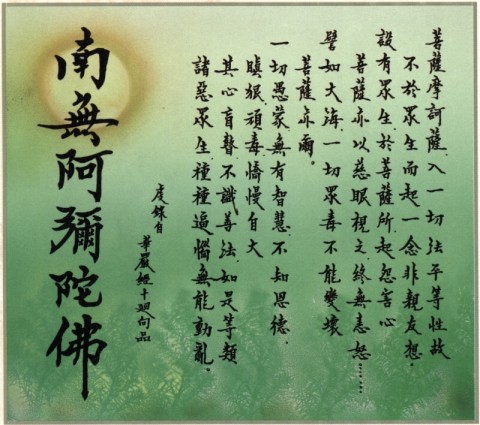 菩薩摩訶薩.入一切法平等性故
不於眾生而起一念非親友想.
設有眾生.於菩薩所起怨害心
菩薩亦以慈眼視之.終無恚怒……
譬如大海.一切眾毒不能變壞
菩薩亦爾。
一切愚蒙.無有智慧.不知恩德.
瞋狠頑毒.憍慢自大
其心盲瞽.不識善法.如是等類
諸惡眾生.種種逼惱.無能動亂.
錄自
華嚴經十迴向品
南無阿彌陀佛